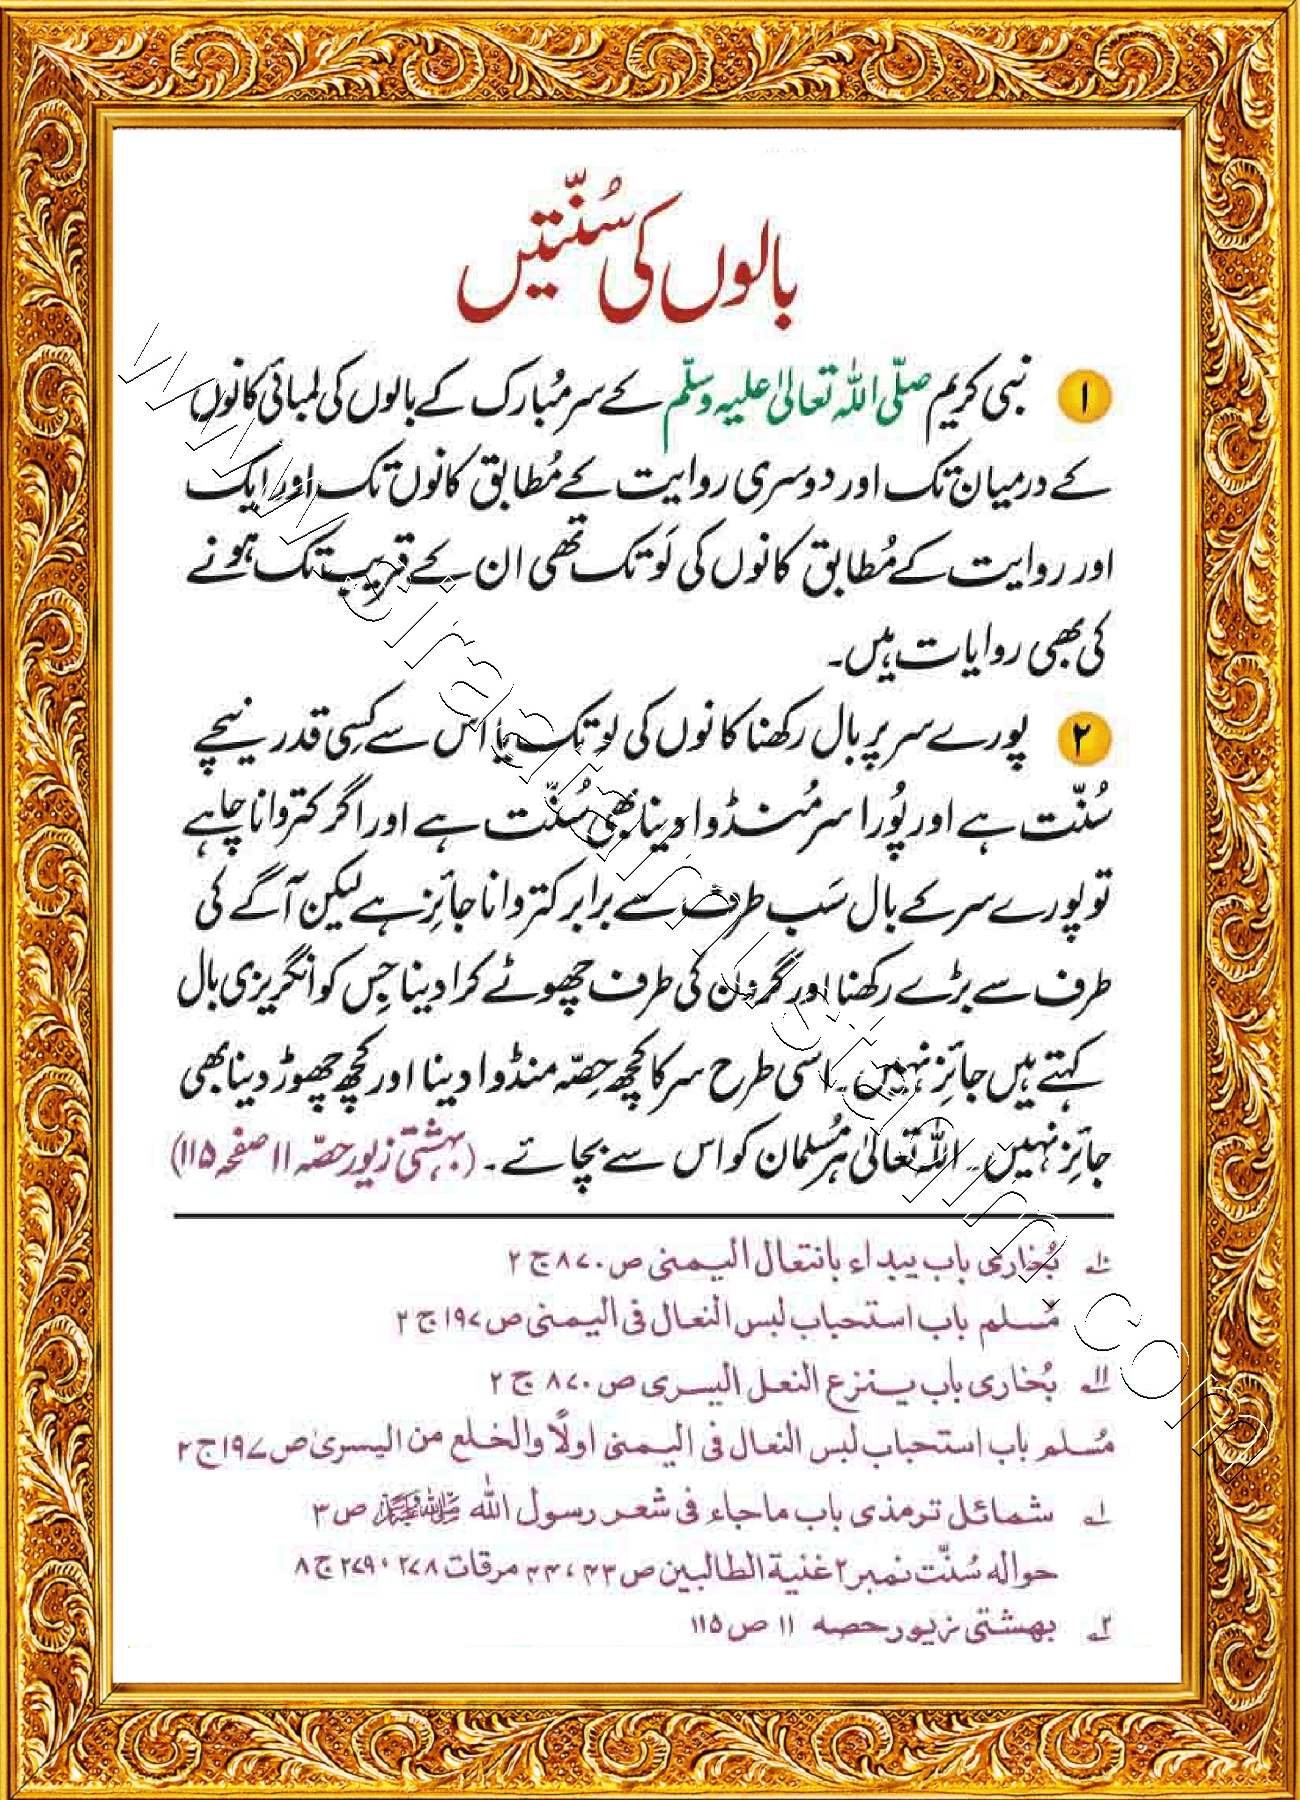 بالوں کی سُنّتیں
۱ نبی کریم صلّی اللّٰہ تعالیٰ علیہ وسلّم کے سر مُبارک کے بالوں کی لمبائی کانوں
کے درمیان تک اور دوسری روایت کے مُطابق کانوں تک اور ایک
اور روایت کے مُطابق کانوں کی لَو تک تھی ان کے قریب تک ہونے
کی بھی روایات ہیں۔
۲ پورے سر پر بال رکھنا کانوں کی لو تک یا اس سے کسِی قدر نیچے
سُنّت ہے اور پُورا سر مُنڈوا دینا بھی سُنّت ہے اور اگر کتروانا چاہے
تو پورے سر کے بال سَب طرف سے برابر کتروانا جائِز ہے لیکن آگے کی
طرف سے بڑے رکھنا اور گردن کی طرف چھوٹے کرا دینا جِس کو انگریزی بال
کہتے ہیں جائِز نہیں۔ اسی طرح سر کا کچھ حِصّہ منڈوا دینا اور کچھ چھوڑ دینا بھی
جائِز نہیں۔ اللّٰہ تعالیٰ ہر مُسلمان کو اس سے بچائے۔ (بہشتی زیور حصّہ ۱۱ صفحہ ۱۱۵)
۱۰ بُخاری باب یبداء بانتعال الیمنی ص ۸۷۰ ج ۲
مُسلم باب استحباب لبس النعال فی الیمنی ص ۱۹۷ ج ۲
۱۱ بُخاری باب ینزع النعل الیسری ص ۸۷۰ ج ۲
مُسلم باب استحباب لبس النعال فی الیمنی اولًا والخلع من الیسریٰ ص ۱۹۷ ج ۲
۱ شمائل ترمذی باب ماجاء فی شعر رسول اللّٰہ ﷺ ص ۳
حوالہ سُنّت نمبر ۲ غنیۃ الطالبین ص ۴۳، ۴۴ مرقات ۲۷۸، ۲۷۹ ج ۸
۲ بہشتی زیور حصہ ۱۱ ص ۱۱۵
www.siraatrulmustaqim.com